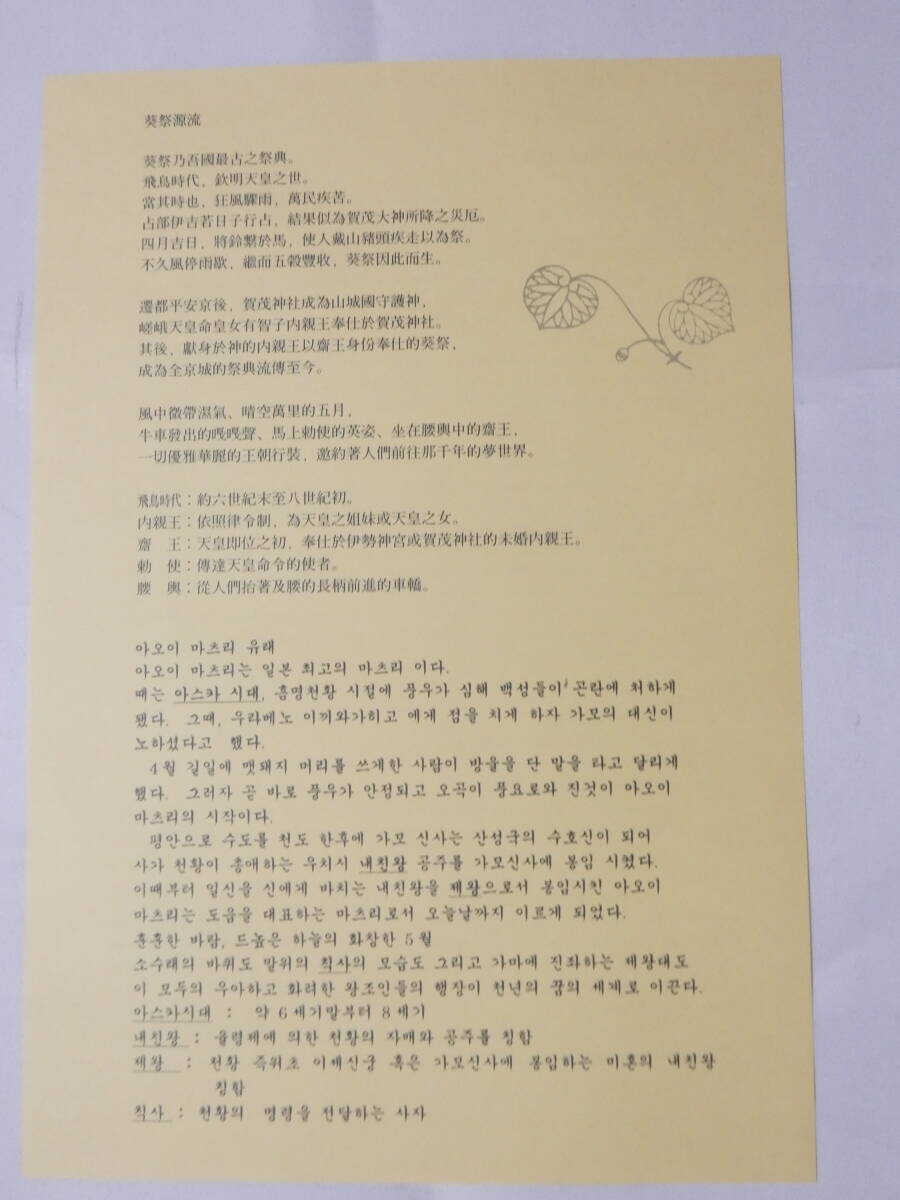 葵祭源流
葵祭乃吾國最古之祭典。
飛鳥時代，欽明天皇之世。
當其時也，狂風驟雨，萬民疾苦。
占部伊吉若日子行占，結果似為賀茂大神所降之災厄。
四月吉日，將鈴繫於馬，使人戴山豬頭疾走以為祭。
不久風停雨歇，繼而五穀豐收，葵祭因此而生。
遷都平安京後，賀茂神社成為山城國守護神，
嵯峨天皇命皇女有智子內親王奉仕於賀茂神社。
其後，獻身於神的內親王以齋王身份奉仕的葵祭，
成為全京城的祭典流傳至今。
風中微帶濕氣、晴空萬里的五月，
牛車發出的嘎嘎聲、馬上勅使的英姿、坐在腰輿中的齋王，
一切優雅華麗的王朝行裝，邀約著人們前往那千年的夢世界。
飛鳥時代：約六世紀末至八世紀初。
內親王：依照律令制，為天皇之姐妹或天皇之女。
齋　王：天皇即位之初，奉仕於伊勢神宮或賀茂神社的未婚內親王。
勅　使：傳達天皇命令的使者。
腰　輿：從人們抬著及腰的長柄前進的車轎。
아오이 마츠리 유래
아오이 마츠리는 일본 최고의 마츠리 이다.
때는 아스카 시대, 흠명천황 시절에 풍우가 심해 백성들이 곤란에 처하게
됐다. 그때, 우라베노 이끼와가히고 에게 점을 치게 하자 가모의 대신이
노하셨다고 했다.
4월 길일에 맷돼지 머리를 쓰게한 사람이 방울을 단 말을 타고 달리게
했다. 그러자 곧 바로 풍우가 안정되고 오곡이 풍요로와 진것이 아오이
마츠리의 시작이다.
평안으로 수도를 천도 한후에 가모 신사는 산성국의 수호신이 되어
사가 천황이 총애하는 우치시 내친왕 공주를 가모신사에 봉임 시켰다.
이때부터 일신을 신에게 바치는 내친왕을 제왕으로서 봉임시킨 아오이
마츠리는 도읍을 대표하는 마츠리로서 오늘날까지 이르게 되었다.
훈훈한 바람, 드높은 하늘의 화창한 5월
소수래의 바퀴도 말위의 칙사의 모습도 그리고 가마에 진좌하는 제왕대도
이 모두의 우아하고 화려한 왕조인들의 행장이 천년의 꿈의 세계로 이끈다.
아스카시대 : 약 6세기말부터 8세기
내친왕 : 율령제에 의한 천황의 자매와 공주를 칭함
제왕 : 천황 즉위초 이세신궁 혹은 가모신사에 봉임하는 미혼의 내친왕
칭함
칙사 : 천황의 명령을 전달하는 사자